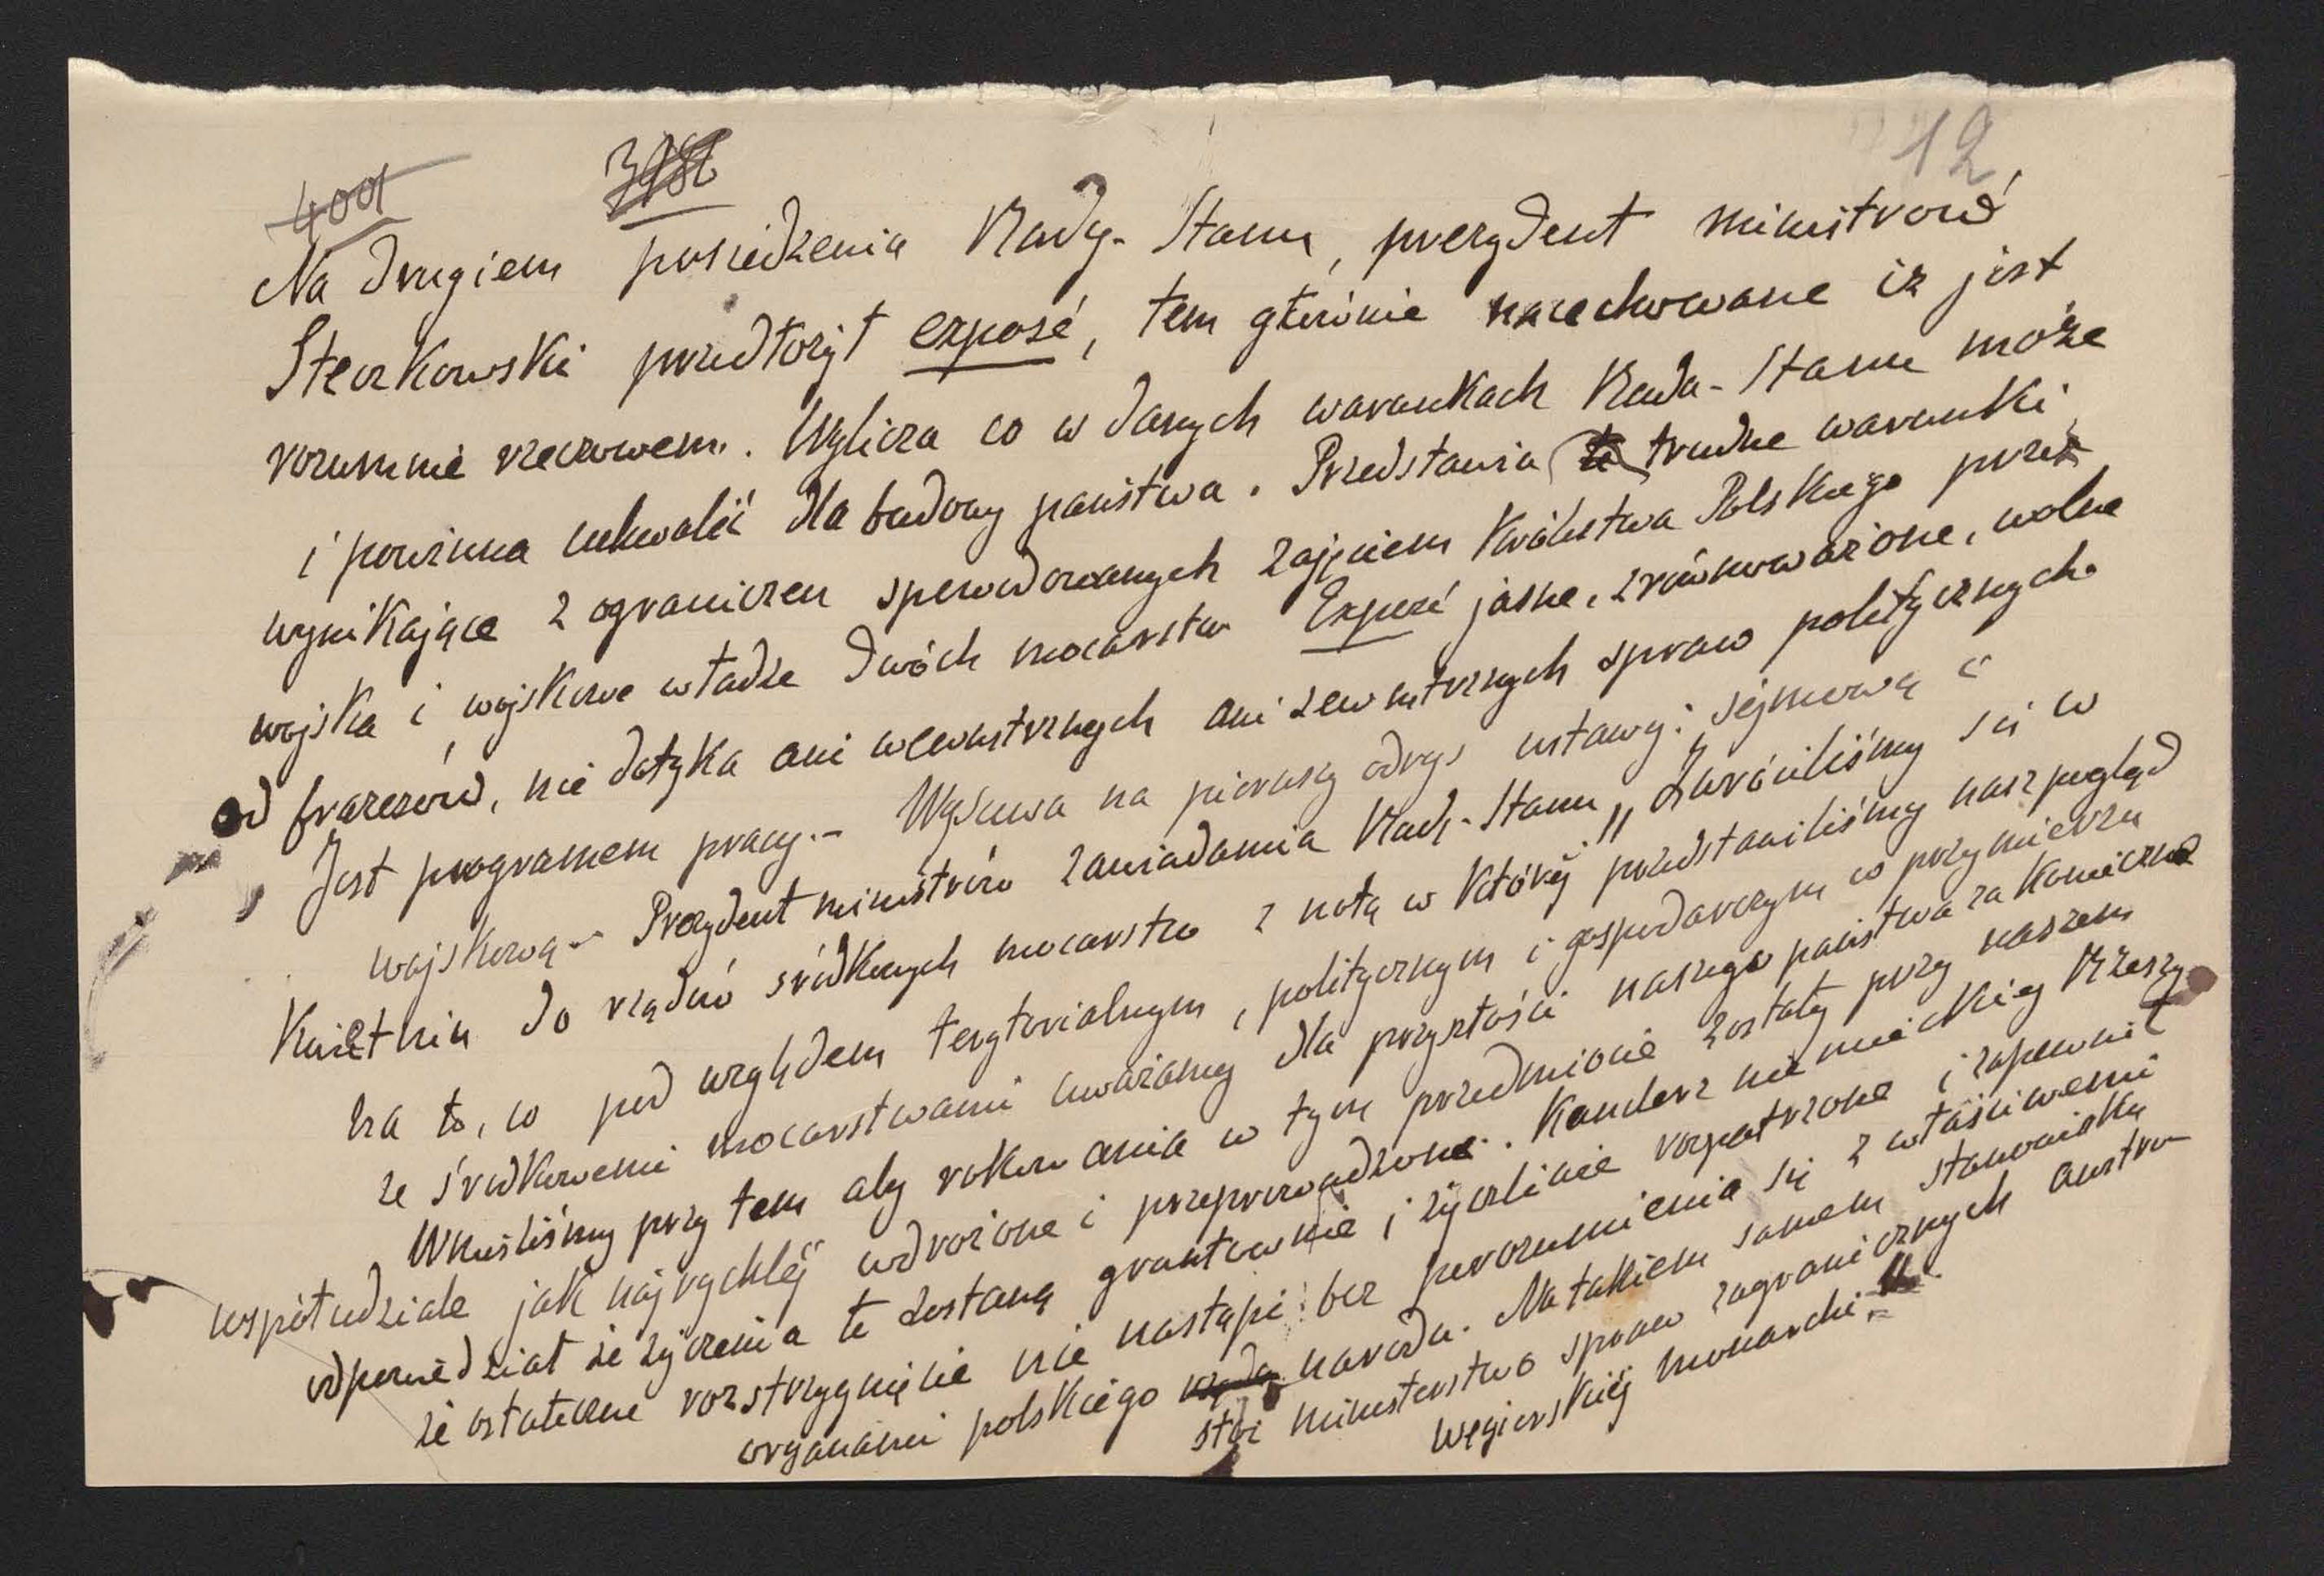 12
4001
Na drugiem posiedzenia Rady-Stanu, prezydent ministrow
Steczkowski przedłożył exposé, tem głównie nacechowane iz jest
rozumnie rzeczowem. Wylicza co w danych warunkach Rada-Stanu może
i powinna uchwalić dla budowy państwa. Przedstawia te trudne warunki
wynikające z ograniczen spowodowanych zajęciem Królestwa Polskiego przez
wojska i wojskowe władze dwóch mocarstw Exposé jasne, zrównoważone, wolne
od frazesów, nie dotyka ani wewnetrznych ani zewnetrznych spraw politycznych
Jest programem pracy.- Wysuwa na pierwszy odrys ustawy: sejmową i
wojskową - Prezydent ministrów zawiadamia Radę-Stanu „Zwróciliśmy się w
Kwietniu do rządów środkowych mocarstw z notą w której przedstawiliśmy nasz pogląd
na to, co pod względem terytorialnym, politycznym i gospodarczym w przymierzu
ze środkowemi mocarstwami uważamy dla przyszłości naszego państwa za konieczne
Wnieśliśmy przy tem aby rokowania w tym przedmiocie zostały przy naszem
współudziale jak najrychlej wdrożone i przeprowadzone. Kanclerz niemieckiej Rzeszy
odpowiedział że życzenia te zostaną gruntownie i życzliwie rozpatrzone i zapewnił
że ostateczne rozstrzygnięcie nie nastąpi bez porozumienia się z właściwemi
organami polskiego narodu. Na takiem samem stanowisku
stoi ministerstwo spraw zagranicznych austro-
węgierskiej monarchi."